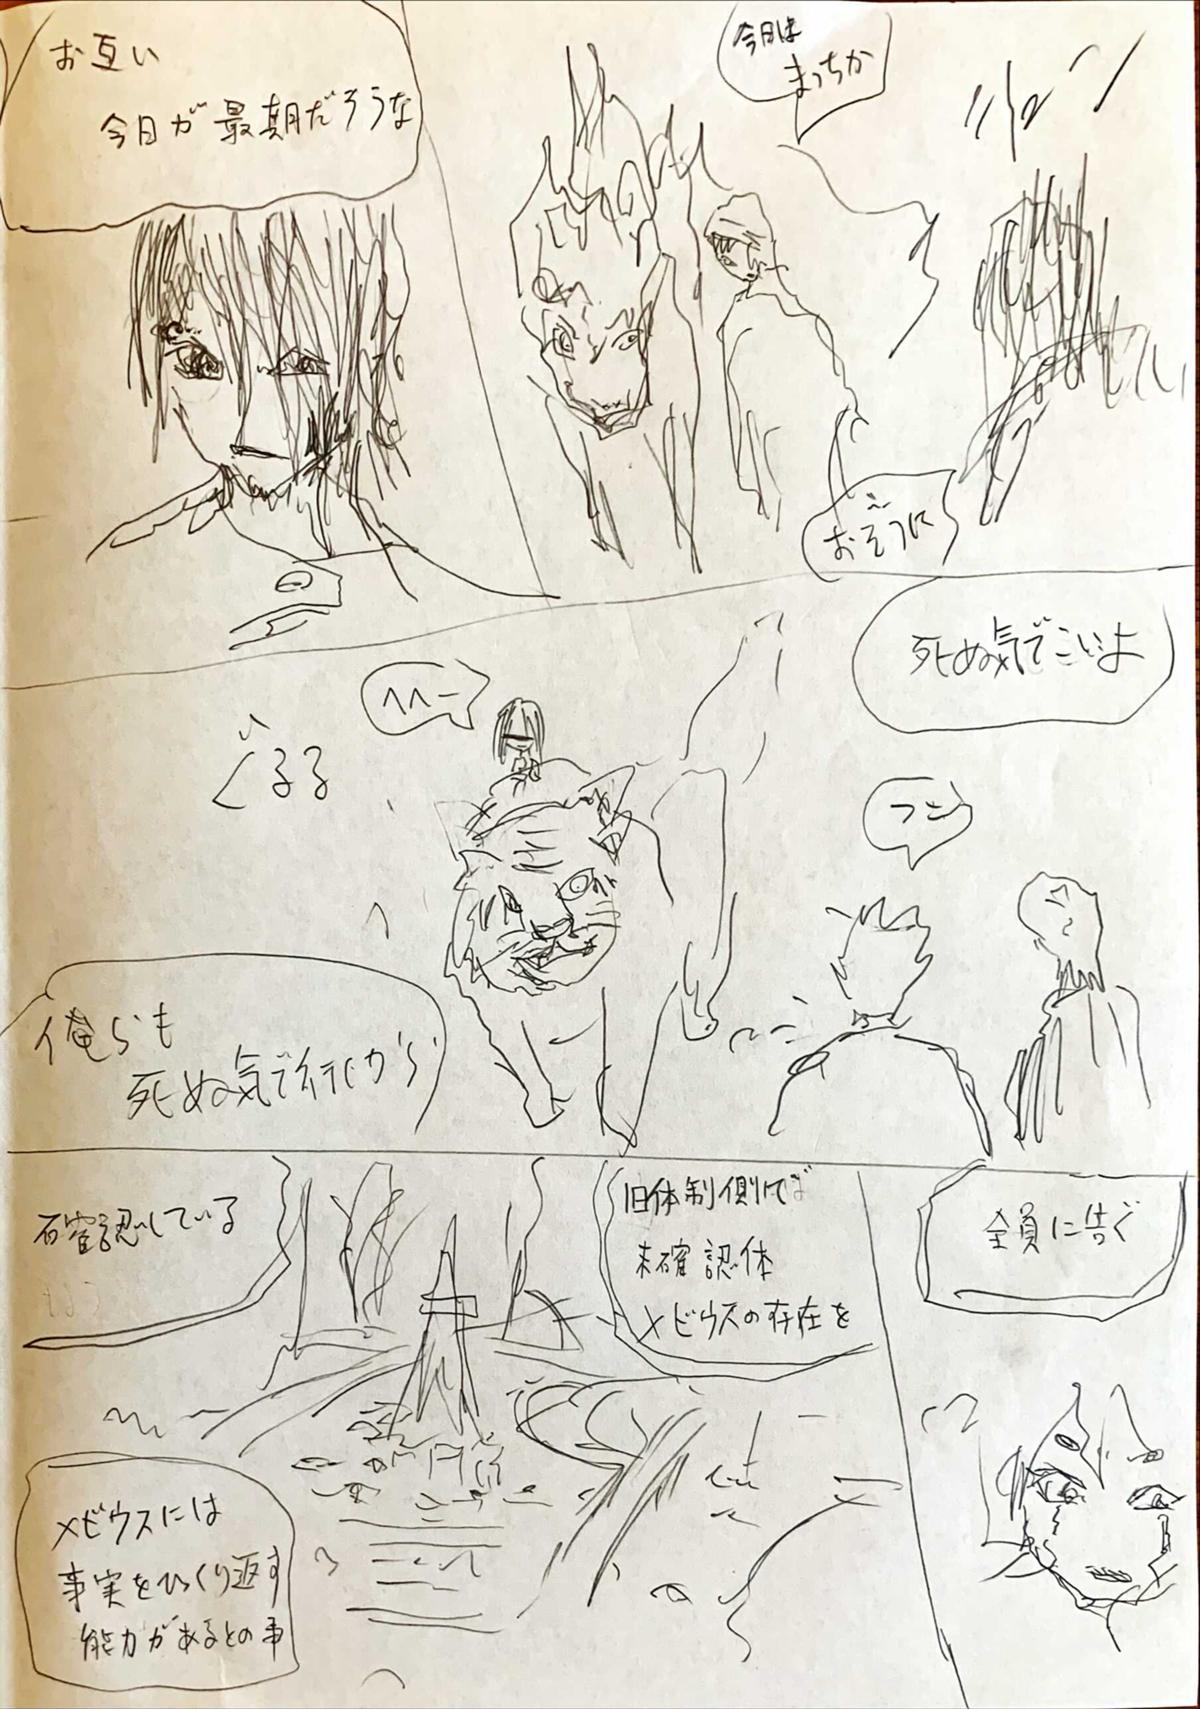 今日は
まっちか
おそろに
お互い
今日が最期だそうな
死ぬ気でこいよ
フン
へへー
ぐるる
俺らも
死ぬ気で行くから
全員に告ぐ
旧体制側では
未確認体
メビウスの存在を
確認している
メビウスには
事実をひっくり返す
能力があるとの事